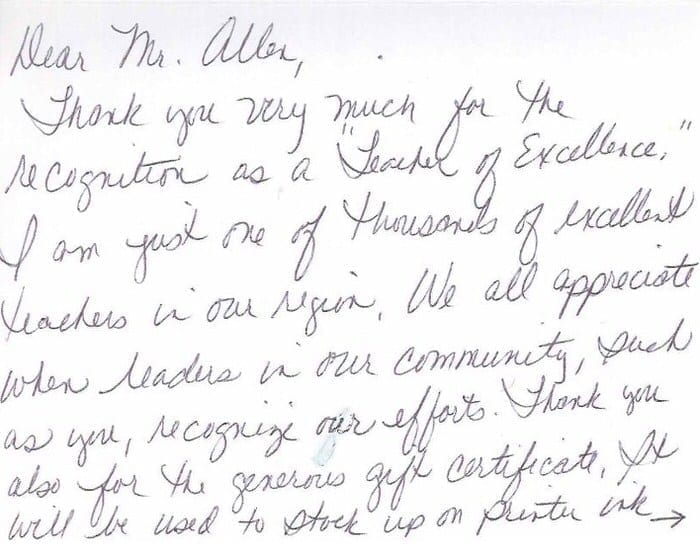 Dear Mr. Allen,
Thank you very much for the
recognition as a "Teacher of Excellence."
I am just one of thousands of excellent
teachers in our region. We all appreciate
when leaders in our community, such
as you, recognize our efforts. Thank you
also for the generous gift certificate. It
will be used to stock up on printer ink →